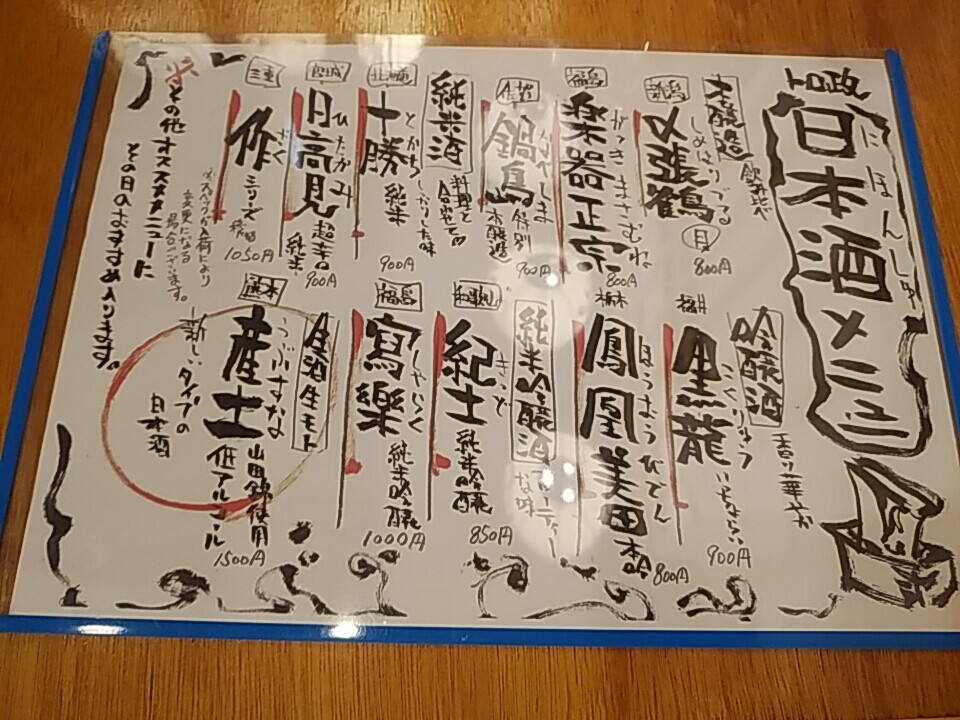 日本酒メニュー
にほんしゅ
本醸造
飲み比べ
新潟
〆張鶴 月
しめはりつる
800円
福島
楽器正宗
がっきまさむね
800円
佐賀
鍋島
なべしま
特別
本醸造
900円
純米酒
料理と
合わせて
北海道
十勝
とかち
純米
しっかりした味
900円
宮城
日高見
ひたかみ
超辛口
純米
900円
三重
作
ざく
シリーズ
1050円
吟醸酒
香り華やか
福井
黒龍
こくりゅう
いっちょらい
900円
栃木
鳳凰美田
ほうおうびでん
本吟
800円
純米吟醸酒
フルーティーな味
和歌山
紀土
きっど
純米吟醸
850円
福島
寫樂
しゃらく
純米吟醸
1000円
生酒生モト
熊本
産土
うぶすな
山田錦使用
低アルコール
1500円
新しいタイプの
日本酒
※スペックが入荷により
変更になる
場合ございます。
※その他オススメメニューに
その日のおすすめ入ります。